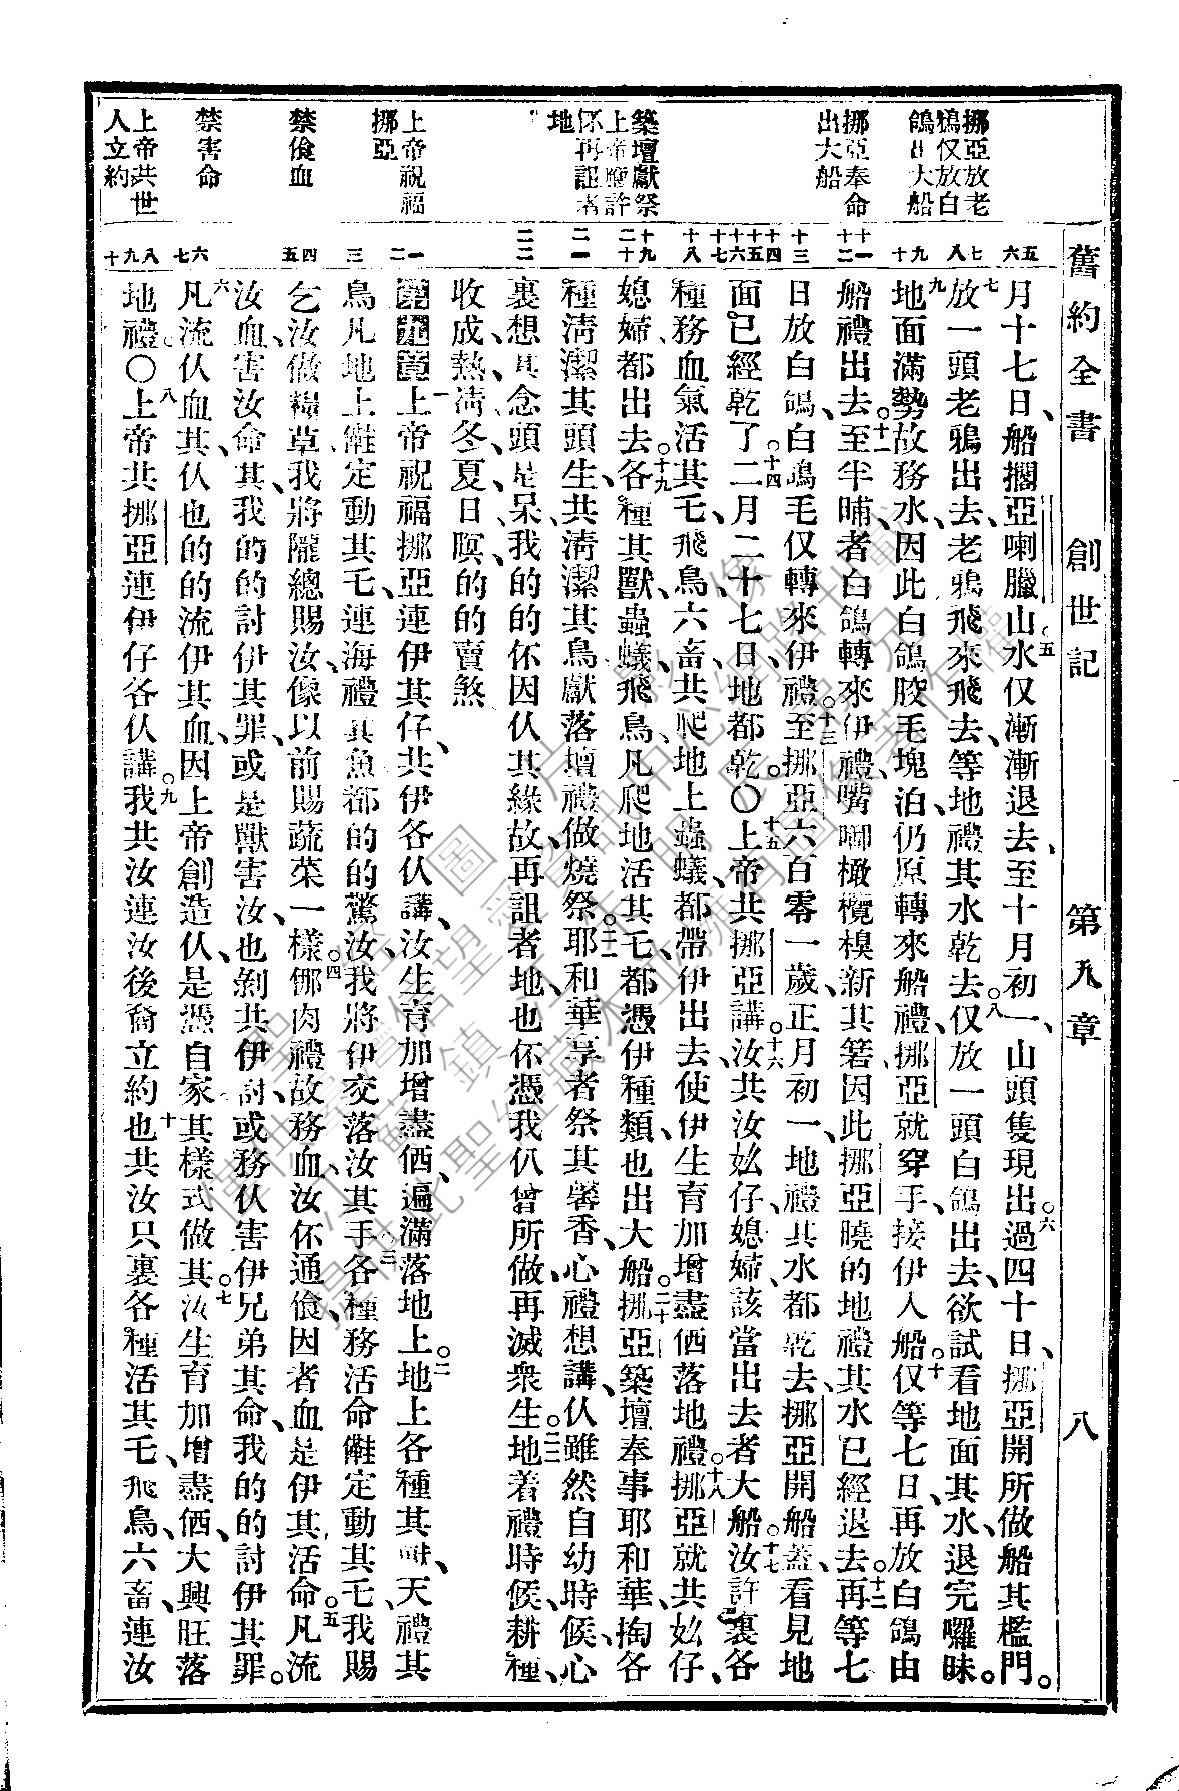 舊約全書 創世記 第九章 八
挪亞放老
鴉仅放白
鴿出大船
挪亞奉命
出大船
築壇獻祭
上帝應許
伓再詛者
地
上帝祝福
挪亞
禁食血
禁害命
上帝共世
人立約
五 六 七 八 九 十 十一 十二 十三 十四 十五 十六 十七 十八 十九 二十 二一 二二 一 二 三 四 五 六 七 八 九 十
月十七日、船擱亞喇臘山。五水仅漸漸退去、至十月初一、山頭隻現出。六過四十日、挪亞開所做船其檻門。
七放一頭老鴉出去、老鴉飛來飛去、等地禮其水乾去。八仅放一頭白鴿出去、欲試看地面其水、退完囉昧。
九地面滿勢故務水、因此白鴿胶毛塊泊、仍原轉來船禮、挪亞就穿手、接伊入船。十仅等七日、再放白鴿由
船禮出去。十一至半晡、者白鴿轉來伊禮、嘴啣橄欖模新其箬、因此挪亞曉的地禮其水已經退去。十二再等七
日、放白鴿、白鴿毛仅轉來伊禮。十三至挪亞六百零一歲、正月初一、地禮其水都乾去、挪亞開船蓋、看見地
面已經乾了。十四二月二十七日、地都乾。〇十五上帝共挪亞講。十六汝共汝𡚸仔媳婦、該當出去者大船。十七汝許裏各
種務血氣活其乇、飛鳥六畜、共爬地上蟲蟻、都帶伊出去、使伊生育加增盡価落地禮。十八挪亞就共𡚸仔
媳婦都出去。十九各種其獸蟲蟻、飛鳥、凡爬地活其乇、都憑伊種類、也出大船。二十挪亞築壇奉事耶和華、掏各
種清潔其頭生、共清潔其鳥、獻落壇禮、做燒祭。二一耶和華享者祭其馨香、心禮想講、仈雖然自幼時候、心
裏想其念頭是呆、我的的伓因仈其緣故、再詛者地、也伓憑我仈曾所做、再滅衆生。二二地着禮時候、耕種、
收成、熱凊、冬夏、日暝、的的賣煞
第九章 一上帝祝福挪亞連伊其仔、共伊各仈講、汝生育加增盡価、遍滿落地上。二地上各種其獸、天禮其
鳥、凡地上𫢗定動其乇、連海禮其魚、都的的驚汝、我將伊交落汝其手。三各種務活命𫢗定動其乇、我賜
乞汝做糧草、我將隴總賜汝、像以前賜蔬菜一樣。四㑚肉禮故務血、汝伓通食、因者血是伊其活命。五凡流
汝血、害汝命其、我的的討伊其罪、或是獸害汝、也剿共伊討、或務仈害伊兄弟其命、我的的討伊其罪。
六凡流仈血其、仈也的的流伊其血、因上帝創造仈、是憑自家其樣式做其。七汝生育加增盡価、大興旺落
地禮。〇八上帝共挪亞連伊仔各仈講。九我共汝連汝後裔立約。十也共汝只裏各種活其乇、飛鳥、六畜、連汝